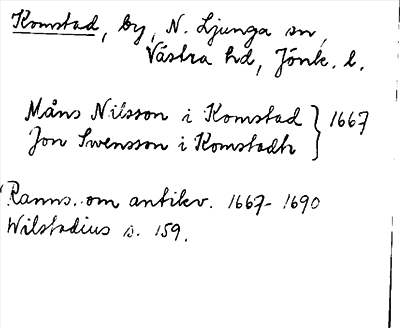 Komstad, by, N. Ljunga sn,
Västra hd, Jönk. l.
Måns Nilsson i Komstad } 1667
Jon Swensson i Komstadh
Ranns. om antikv. 1667-1690
Wilstadius s. 159.